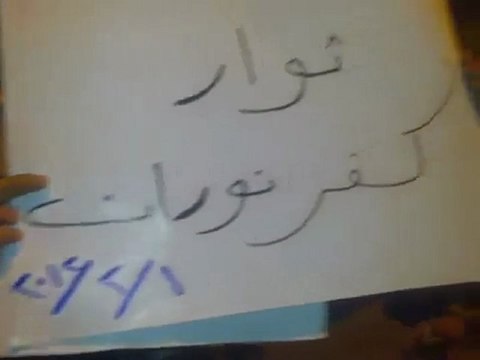 ثوار
كفرنوران
٢٠١٤/٢/١